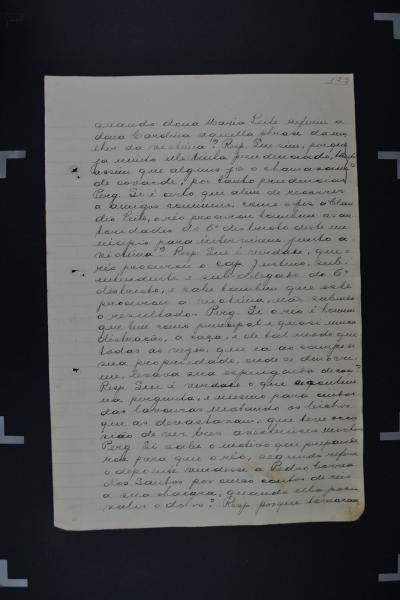 122
quando dona Maria Leite referiu a
dona Carolina aquella phrase da mu-
lher da victima? Resp. Que sim, porque
ja muito elle tinha prudenciado, tanto
assim que alguns ja o chamavam
de covarde, por tanto prudenciar.
Perg. Si é certo que alem de recorrer
a amigos communs, como o fez a Clau-
dio Leite, o réo procurou tambem as au-
toridades do 6º districto deste mu-
nicipio para intervirem junto a
victima? Resp. Que é verdade, que o
réo procurou o cap. Justino, sub-
intendente e sub-delegado do 6º
districto, e sabe tambem que este
procurou a victima, mas sabendo
o resultado. Perg. Si o réo é homem
que tem como principal e quasi unica
distração, a caça, e de tal modo que
todas as vezes, que ia ao campo de
sua propriedade, onde se deu o cri-
me, levava sua espingarda de caça?
Resp. Que é verdade o que se contem
na pergunta, e mesmo para cuidar
das lavouras matando os bichos
que as devastavam; que teve occa-
sião de ver tres
Perg. Si sabe o motivo que preponde-
rou para que o réo, segundo refere
o depoente vendesse a Pedro Correa
dos Santos por cinco contos de reis
a sua chacara, quando ella podia
valer o dobro? Resp. porque